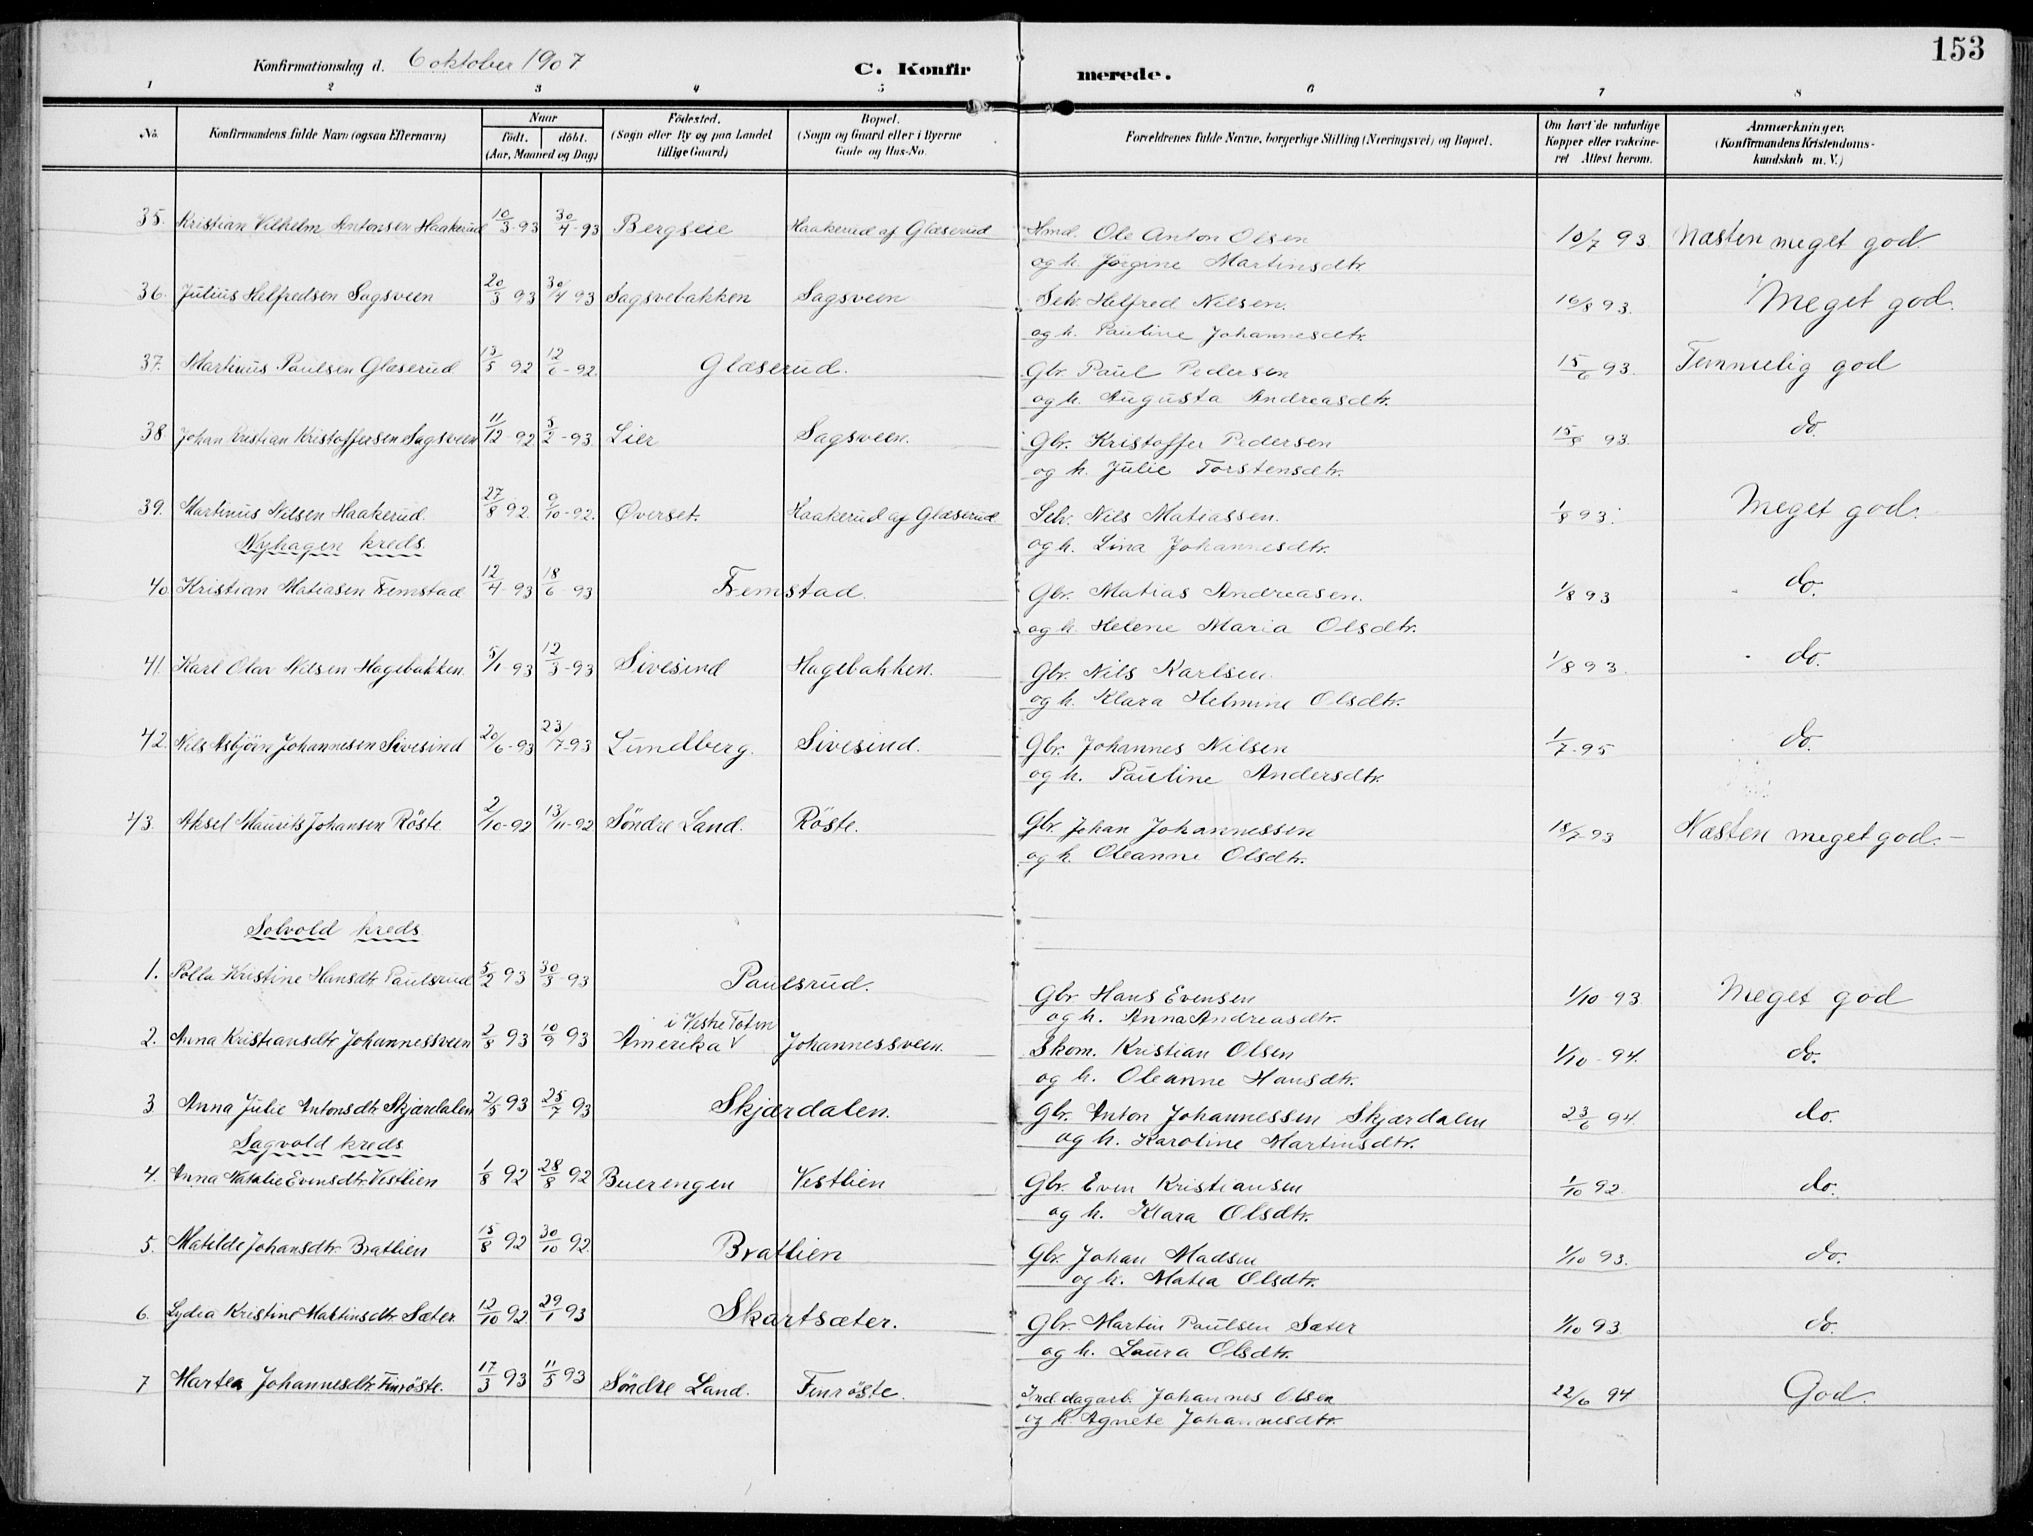 153
Konfirmationsdag d. 6 oktober 1907 C. Konfirmerede.
1 2 3 4 5 6 7 8
No. Konfirmandens fulde Navn (ogsaa Efternavn) Naar født. døbt. (Aar, Maaned og Dag) Fødested. (Sogn eller By og paa Landet tillige Gaard) Bopæl. (Sogn og Gaard eller i Byerne Gade og Hus-No. Forældrenes fulde Navne, borgerlige Stilling (Næringsvei) og Bopæl. Om havt de naturlige Kopper eller vakcineret Attest herom. Anmærkninger. (Konfirmandens Kristendomskundskab m. V.)
35. Kristian Vilhelm Antonsen Haakerud 10/3-93 30/4-93 Bergseie Haakerud af Glæserud Hmd. Ole Anton Olsen 10/7 93. Næsten meget god.
og h. Jørgine Martinsdtr.
36. Julius Helfredsen Sagsveen 20/3 93 30/4 93 Sagsvebakken Sagsveen Selv. Helfred Nilsen. 16/8 93. Meget god.
og h. Pauline Johannesdtr.
37. Martinus Paulsen Glæserud 13/5 92 12/6-92. Glæserud. Gbr. Paul Pedersen 15/6 93. Temmelig god
og h. Augusta Andreasdtr.
38 Johan Kristian Kristoffersen Sagsveen 11/12-92 5/2-93 Lier Sagsveen. Gbr. Kristoffer Pedersen 15/8 93. do.
og h. Julie Torstensdtr.
39. Martinus Nilsen Haakerud. 27/8 92. 9/10-92. Øverset. Haakerud af Glæserud Selv. Nils Matiassen. 1/8 93. Meget god.
og h. Lina Johannesdtr.
Nyhagen kreds.
40. Kristian Matiasen Fremstad 12/4-93 18/6-93 Fremstad. Gbr. Matias Andreasen. 1/8 93 do.
og h. Helene Maria Olsdtr.
41. Karl Olav Nilsen Hagebakken. 5/1-93 12/3-93 Sivesind Hagebakken. Gbr. Nils Karlsen. 1/8 93. do.
og h. Klara Helmine Olsdtr.
42. Nils Asbjørn Johannesen Sivesind 20/6-93 23/7-93 Lundberg. Sivesind. Gbr. Johannes Nilsen 1/7-95 do.
og h. Pauline Andersdtr.
43. Aksel Maurits Johansen Röste 2/10-92 13/11-92 Søndre Land. Röste. Gbr. Johan Johannessen 18/7-93 Næsten meget god.-
og h. Oleanne Olsdtr.
Solvold kreds.
1. Polla Kristine Hansdtr. Paulsrud 5/2 93 30/3-93 Paulsrud. Gbr Hans Evensen 1/10-93. Meget god
og h. Anna Andreasdtr.
i Vestre Toten
2. Anna Kristiansdtr. Johannessveen 2/8 93 10/9 93 Amerika V Johannessveen. Skom. Kristian Olsen 1/10-94. do.
og h. Oleanne Hansdtr.
3 Anna Julie Antonsdtr. Skjærdalen 2/5 93 25/7 93 Skjærdalen. Gbr. Anton Johannessen Skjærdalen 23/6 94. do.
og h. Karoline Martinsdtr.
Sagvold kreds.
4. Anna Natalie Evensdtr. Vestlien 1/8 92 28/8 92 Buerengen Vestlien Gbr. Even Kristiansen 1/10 92. do.
og h. Klara Olsdtr.
5. Matilde Johansdtr. Bratlien 15/8 92 30/10 92. Bratlien Gbr. Johan Madsen 1/10 93. do.
og h. Matea Olsdtr.
6. Lydia Kristine Martinsdtr. Sæter. 12/10 92. 29/1 93 Skartsæter. Gbr. Martin Paulsen Sæter 1/10 93. do.
og h. Laura Olsdtr.
7 Martea Johannesdtr. Finröste. 17/3 93 11/5 93 Søndre Land. Finröste. Ind. dagarb. Johannes Olsen 22/6 94 God.
og h. Agnete Johannesdtr.